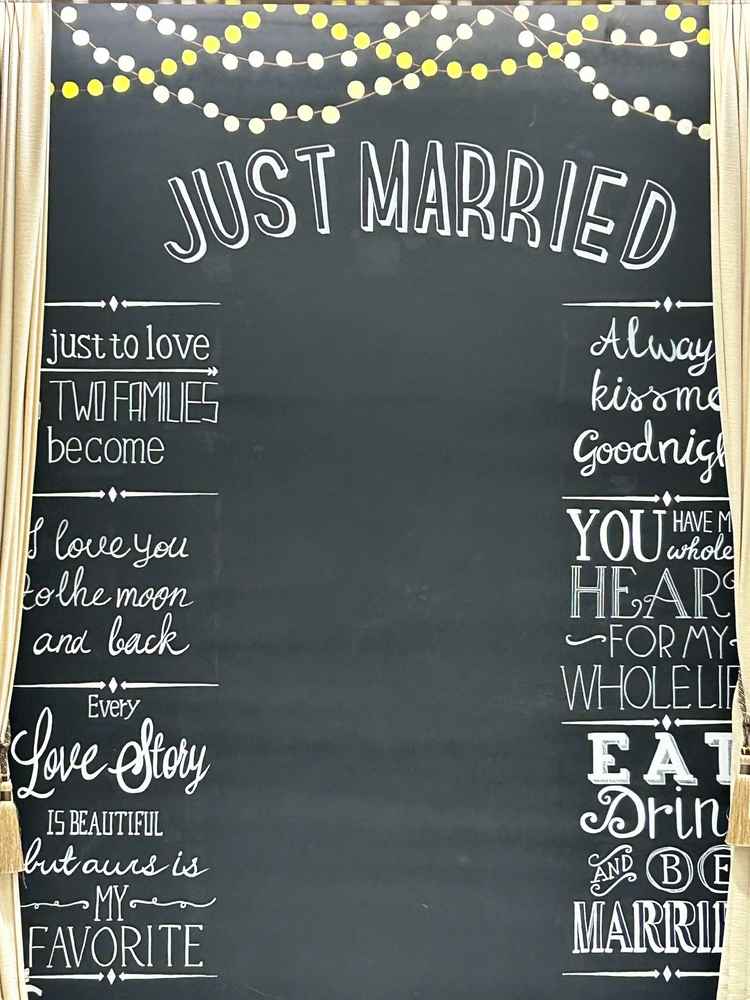 JUST MARRIED
just to love
TWO FAMILIES
become
I love you
to the moon
and back
Every
Love Story
IS BEAUTIFUL
but aurs is
MY
FAVORITE
Alway
kiss me
Goodnigh
YOU HAVE M
whole
HEART
FOR MY
WHOLE LIF
EAT
Drin
AND BE
MARRIE